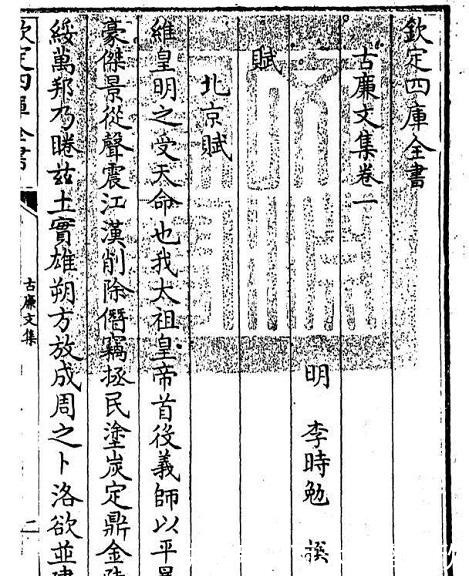 欽定四庫全書
古廉文集卷一
明 李時勉 撰
賦
北京賦
維皇明之受天命也我太祖皇帝首役義師以平
豪傑景從聲震江漢削除僭竊拯民塗炭定鼎金陵
綏萬邦乃睠茲土實雄朔方放成周之卜洛欲並建
欽定四庫全書
古廉文集
二